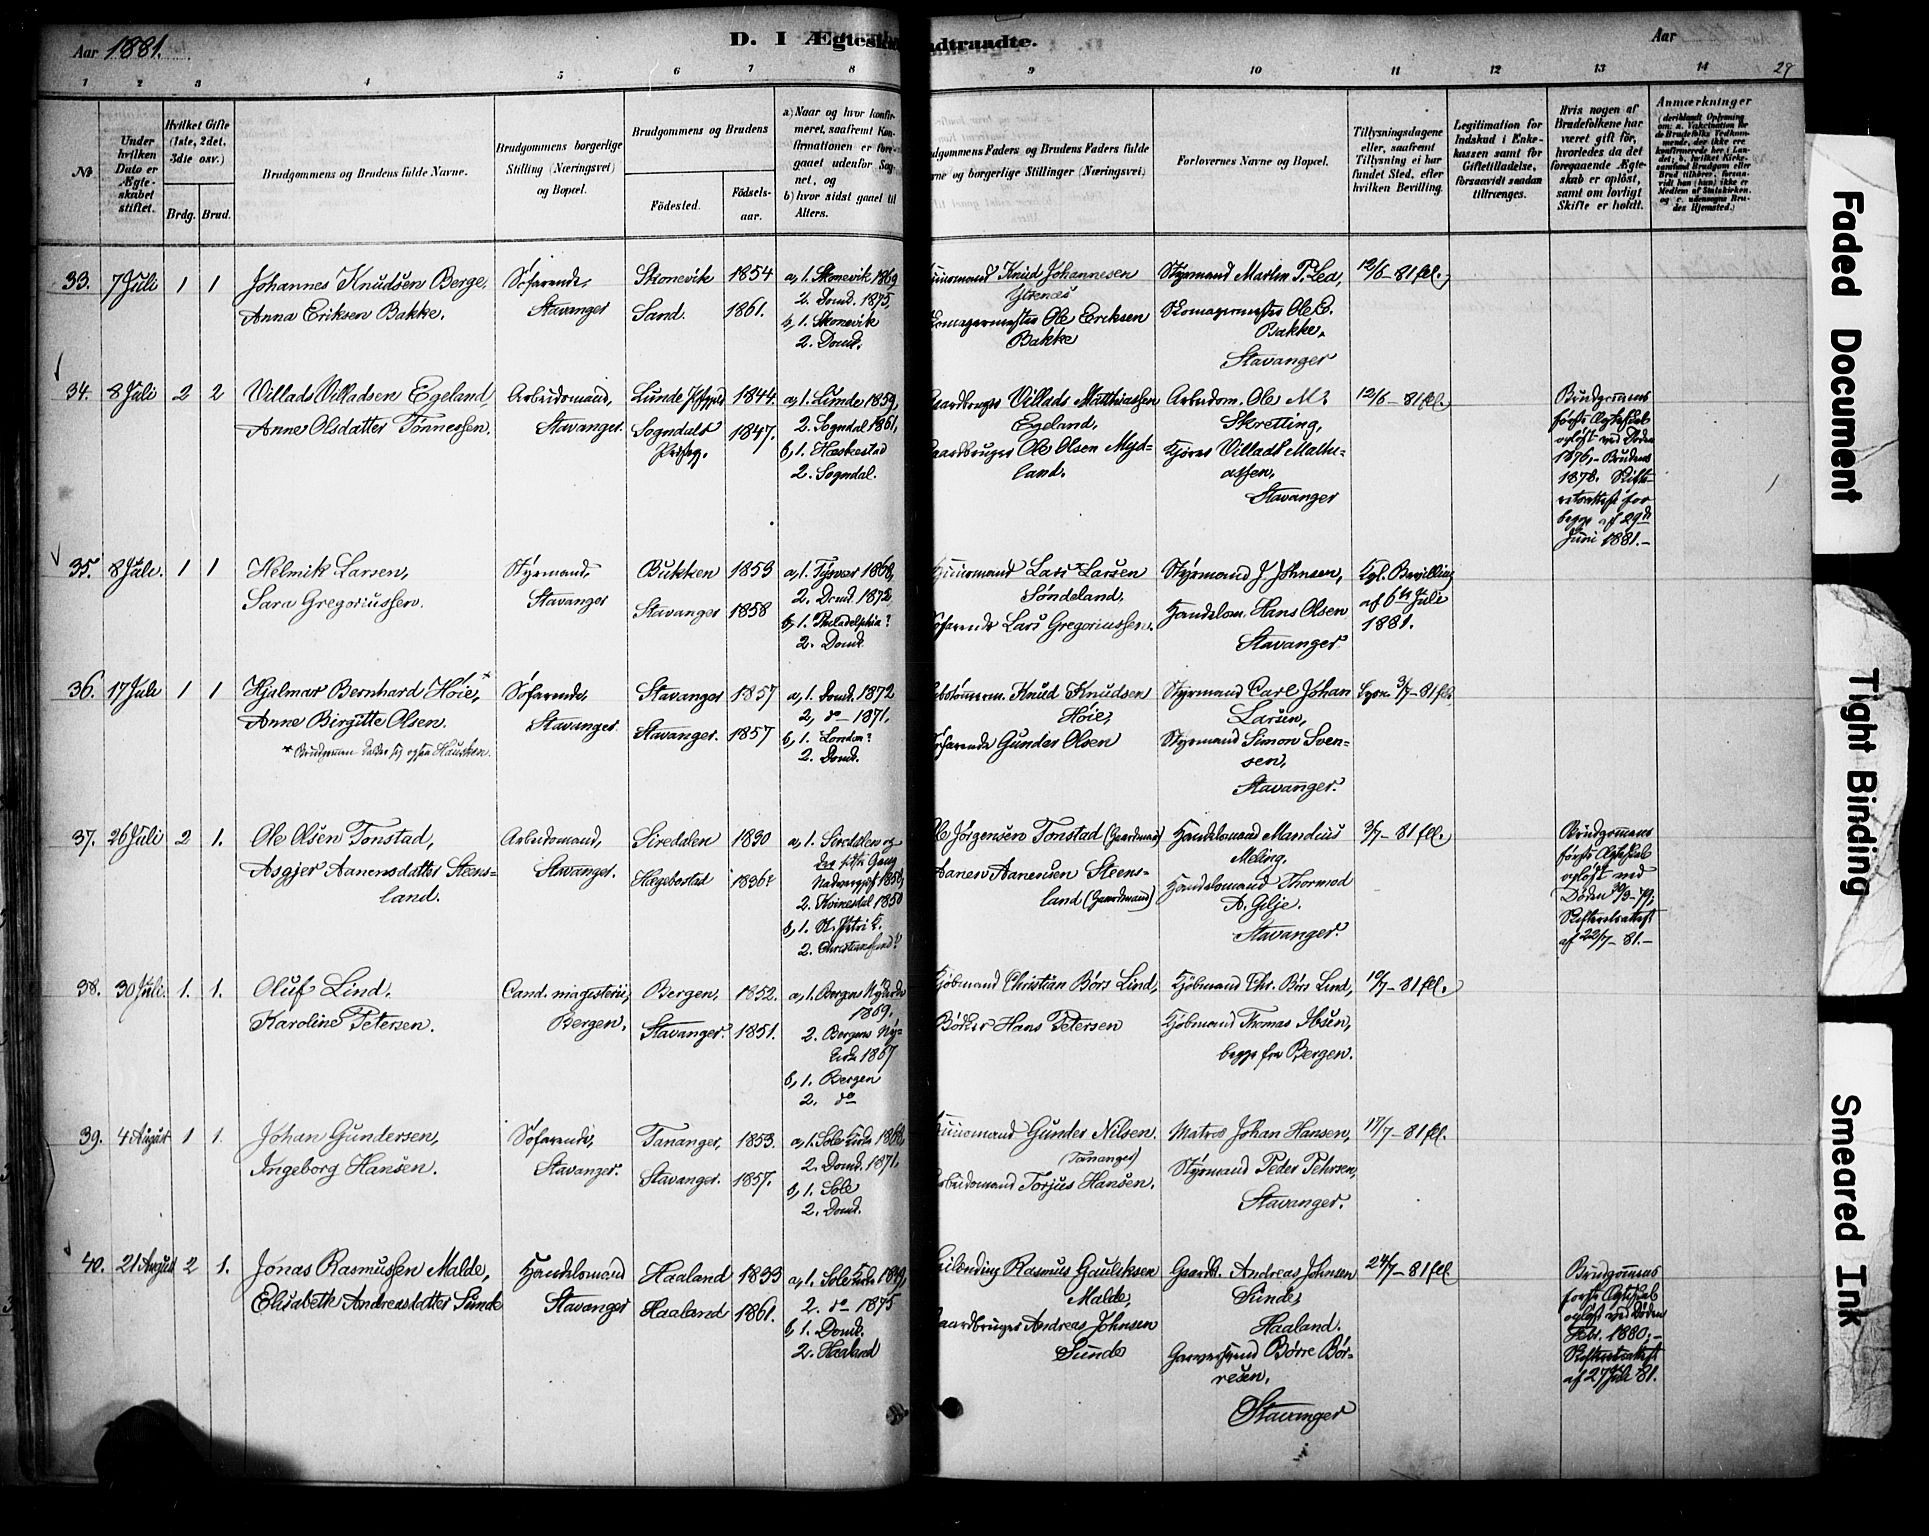 Aar 1881.
D. I Ægteska
ndtraadte.
Aar
1 2 3 4 5 6 7 8 9 10 11 12 13 14 29
No
Under hvilken Dato er Ægteskabet stiftet.
Hvilket Gifte (1ste, 2det, 3die osv.)
Brdg. Brud.
Brudgommens og Brudens fulde Navne.
Brudgommens borgerlige Stilling (Næringsvei) og Bopæl.
Brudgommens og Brudens
Fødested.
Fødselsaar.
a) Naar og hvor konfirmeret, saafremt Konfirmationen er foregaaet udenfor Sognet, og
b) hvor sidst gaaet til Alters.
udgommens Faders og Brudens Faders fulde
vne og borgerlige Stillinger (Næringsvei).
Forlovernes Navne og Bopæl.
Tillysningsdagene eller, saafremt Tillysning ei har fundet Sted, efter hvilken Bevilling.
Legitimation for Indskud i Enkekassen samt for Giftetilladelse, forsaavidt saadan tiltrænges.
Hvis nogen af Brudefolkene har været gift før, hvorledes da det foregaaende Ægteskab er opløst, samt om lovligt Skifte er holdt.
Anmærkninger
33. 7 Juli 1 1
Johannes Knudsen Berge,
Anna Eriksen Bakke.
Søfarende,
Stavanger
Skonevik 1854
Sand. 1861.
a, 1. Skonevik 1869
2. Domk. 1875,
b, 1. Skonevik
2. Domk.
Huusmand Knud Johannesen
Ytrenæs
Skomagermester Ole Eriksen
Bakke
Styrmand Martin T. Lea,
Skomagermester Ole E.
Bakke.
Stavanger
12/6 - 81 fll.,
34. 8 Juli 2 2
Villads Villadsen Egeland,
Anne Olsdatter Tønnessen.
Arbeidsmand,
Stavanger.
Lunde 1844.
Sogndals 1847.
a, 1. Lunde 1859,
2. Sogndal 1861,
b, 1. Heskestad
2. Sogndal.
aardbruger Villads Matthiassen
Egeland,
aardbruger Ole Olsen Myd-
land.
Arbeidsm. Ole M.
Skretting,
Villads Mathi-
assen,
Stavanger
12/6 - 81 fll.
Brudgomens
første Ægteskab
opløst ved Døden
1876, - Brudens
1878. Skifte-
retsattest for
begge af 29de
Juni 1881. -
35. 8 Juli. 1 1
Helmik Larsen,
Sara Gregoriussen.
Styrmand,
Stavanger
Bukken 1853
Stavanger 1858
a, 1. Tysvær 1868,
2. Domk. 1872
b, 1. Philadelphia?
2. Domk
Huusmand Lars Larsen
Søndeland.
Søfarende Lars Gregoriussen.
Styrmand J. Johnsen,
Handelsm. Hans Olsen
Stavanger
Kgl. Bevilling
af 6te Juli
1881.
36. 17 Juli 1 1
Hjalmar Bernhard Høie,*
Anne Birgitte Olsen.
* Brudgommen kalder sig ogsaa Hausken.
Søfarende,
Stavanger.
Stavanger 1857
Stavanger. 1857
a, 1. Domk. 1872
2, do - 1871.
b, 1. London?
2. Domk.
Knud Knudsen
Høie,
Søfarende Gunder Olsen
Styrmand Carl Johan
Larsen,
Styrmand Simon Sven-
sen,
Stavanger.
3/7 - 81 fll.
37. 26 Juli 2 1.
Ole Olsen Tonstad,
Asgjer Aanensdatter Steens-
land.
Arbeidsmand,
Stavanger.
Siredalen 1830
Hægebostad 1836?
a, 1. Siredalen og
2. Kvinesdal 1850
b, 1. St. Petri k.
2. Christianssand?
Ole Jørgensen Tonstad (Gaardmand)
Aanen Aanensen Steens-
land (Gaardmand)
Handelsmand Mandius
Meling.
Handelsmand Thormod
A. Gilje.
Stavanger.
3/7 - 81 fll.
Brudgomens
første Ægteskab
opløst ved
Døden 30/3 - 79,
Skifteretsattest
af 22/7 - 81. -
38. 30 Juli. 1. 1.
Oluf Lind.
Karoline Petersen.
Cand. magisterii,
Bergen.
Bergen, 1852.
Stavanger. 1851.
a, 1. Bergens Nykirke
1869.
2. Bergens Ny-
kirke 1867
b, 1. Bergen
2. do
Kjøbmand Christian Børs Lind,
Bødker Hans Petersen
Kjøbmand Chr. Børs Lind,
Kjøbmand Thomas Ibsen,
begge fra Bergen.
10/7 - 81 fll.
39. 4 August 1 1.
Johan Gundersen,
Ingeborg Hansen.
Søfarende,
Stavanger.
Tananger, 1853.
Stavanger. 1857.
a, 1. Sole Kirke 1868,
2. Domk. 1871.
b, 1. Sole
2. Domk.
Huusmand Gunder Nilsen.
(Tananger)
Arbeidsmand Torjus Hansen.
Matros Johan Hansen,
Styrmand Peder Pehrsen,
Stavanger.
17/7 - 81 fll.
40. 21 August 2 1.
Jonas Rasmussen Malde,
Elisabeth Andreasdatter Sunde
Handelsmand
Stavanger
Haaland 1833
Haaland 1861.
a, 1. Sole Kirke 1849,
2. do 1875
b, 1. Domk.
2. Haaland
Rasmus Gauteksen
Malde,
aardbruger Andreas Johnsen
Sunde
Gaardb. Andreas Johnsen
Sunde,
Haaland.
Garversvend Børre Bør-
resen,
Stavanger
24/7 - 81 fll
Brudgomens
første Ægteskab
opløst ved Døden
Febr. 1880, -
Skifteretsattest
af 27 Juli 81.
Faded Document
Tight Binding
Smeared Ink